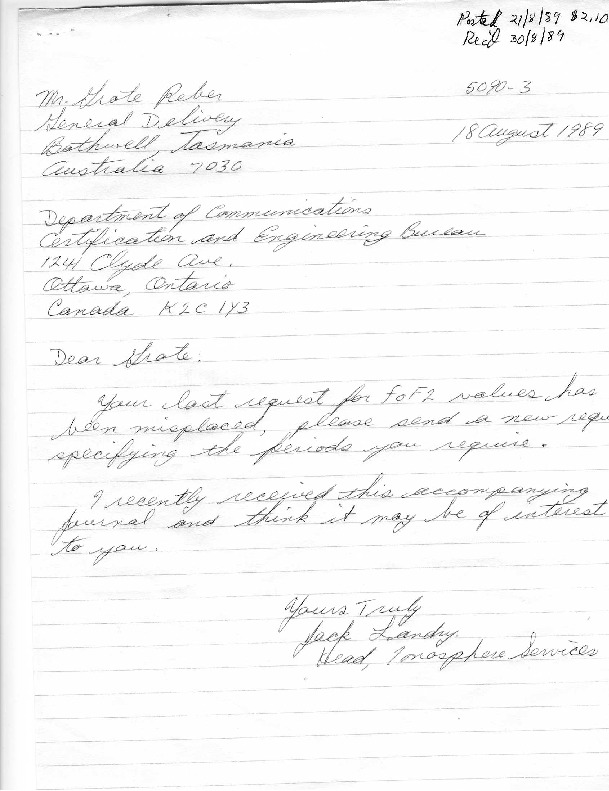 Posted 21/8/89 $2.10
Rec'd 30/8/89
5090-3
Mr. Grote Reber
General Delivery
Bothwell, Tasmania
Australia 7030
18 August 1989
Department of Communications
Certification and Engineering Bureau
1241 Clyde Ave.
Ottawa, Ontario
Canada K2C 1Y3
Dear Grote:
Your last request for foF2 values has
been misplaced, please send a new requ
specifying the periods you require.
I recently received this accompanying
journal and think it may be of interest
to you.
Yours Truly
Jack Landry
Head, Ionosphere Services